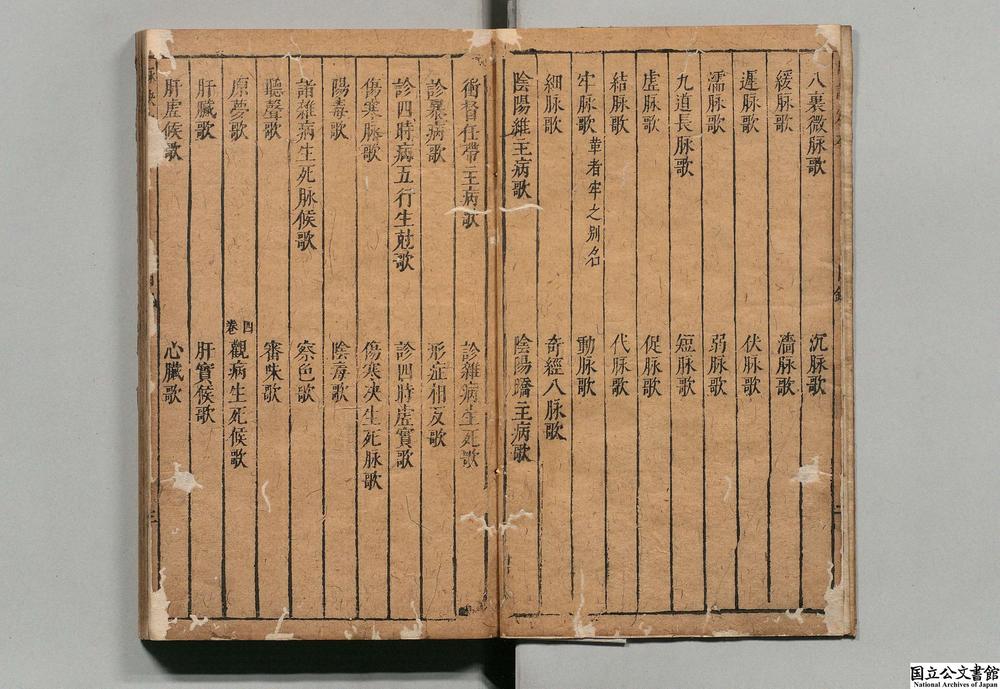 八裏微脉歌
沉脉歌
緩脉歌
濇脉歌
遲脉歌
伏脉歌
濡脉歌
弱脉歌
九道長脉歌
短脉歌
虛脉歌
促脉歌
結脉歌
代脉歌
牢脉歌 革者牢之別名
動脉歌
細脉歌
奇經八脉歌
陰陽維主病歌
陰陽蹻主病歌
衝督任帶主病歌
診雜病生死歌
診暴病歌
形症相反歌
診四時病五行生尅歌
診四時虛實歌
傷寒脉歌
傷寒决生死脉歌
陽毒歌
陰毒歌
諸雜病生死脉候歌
察色歌
聽聲歌
審味歌
原夢歌
卷四 觀病生死候歌
肝臟歌
肝實候歌
肝虛候歌
心臟歌
国立公文書館
National Archives of Japan